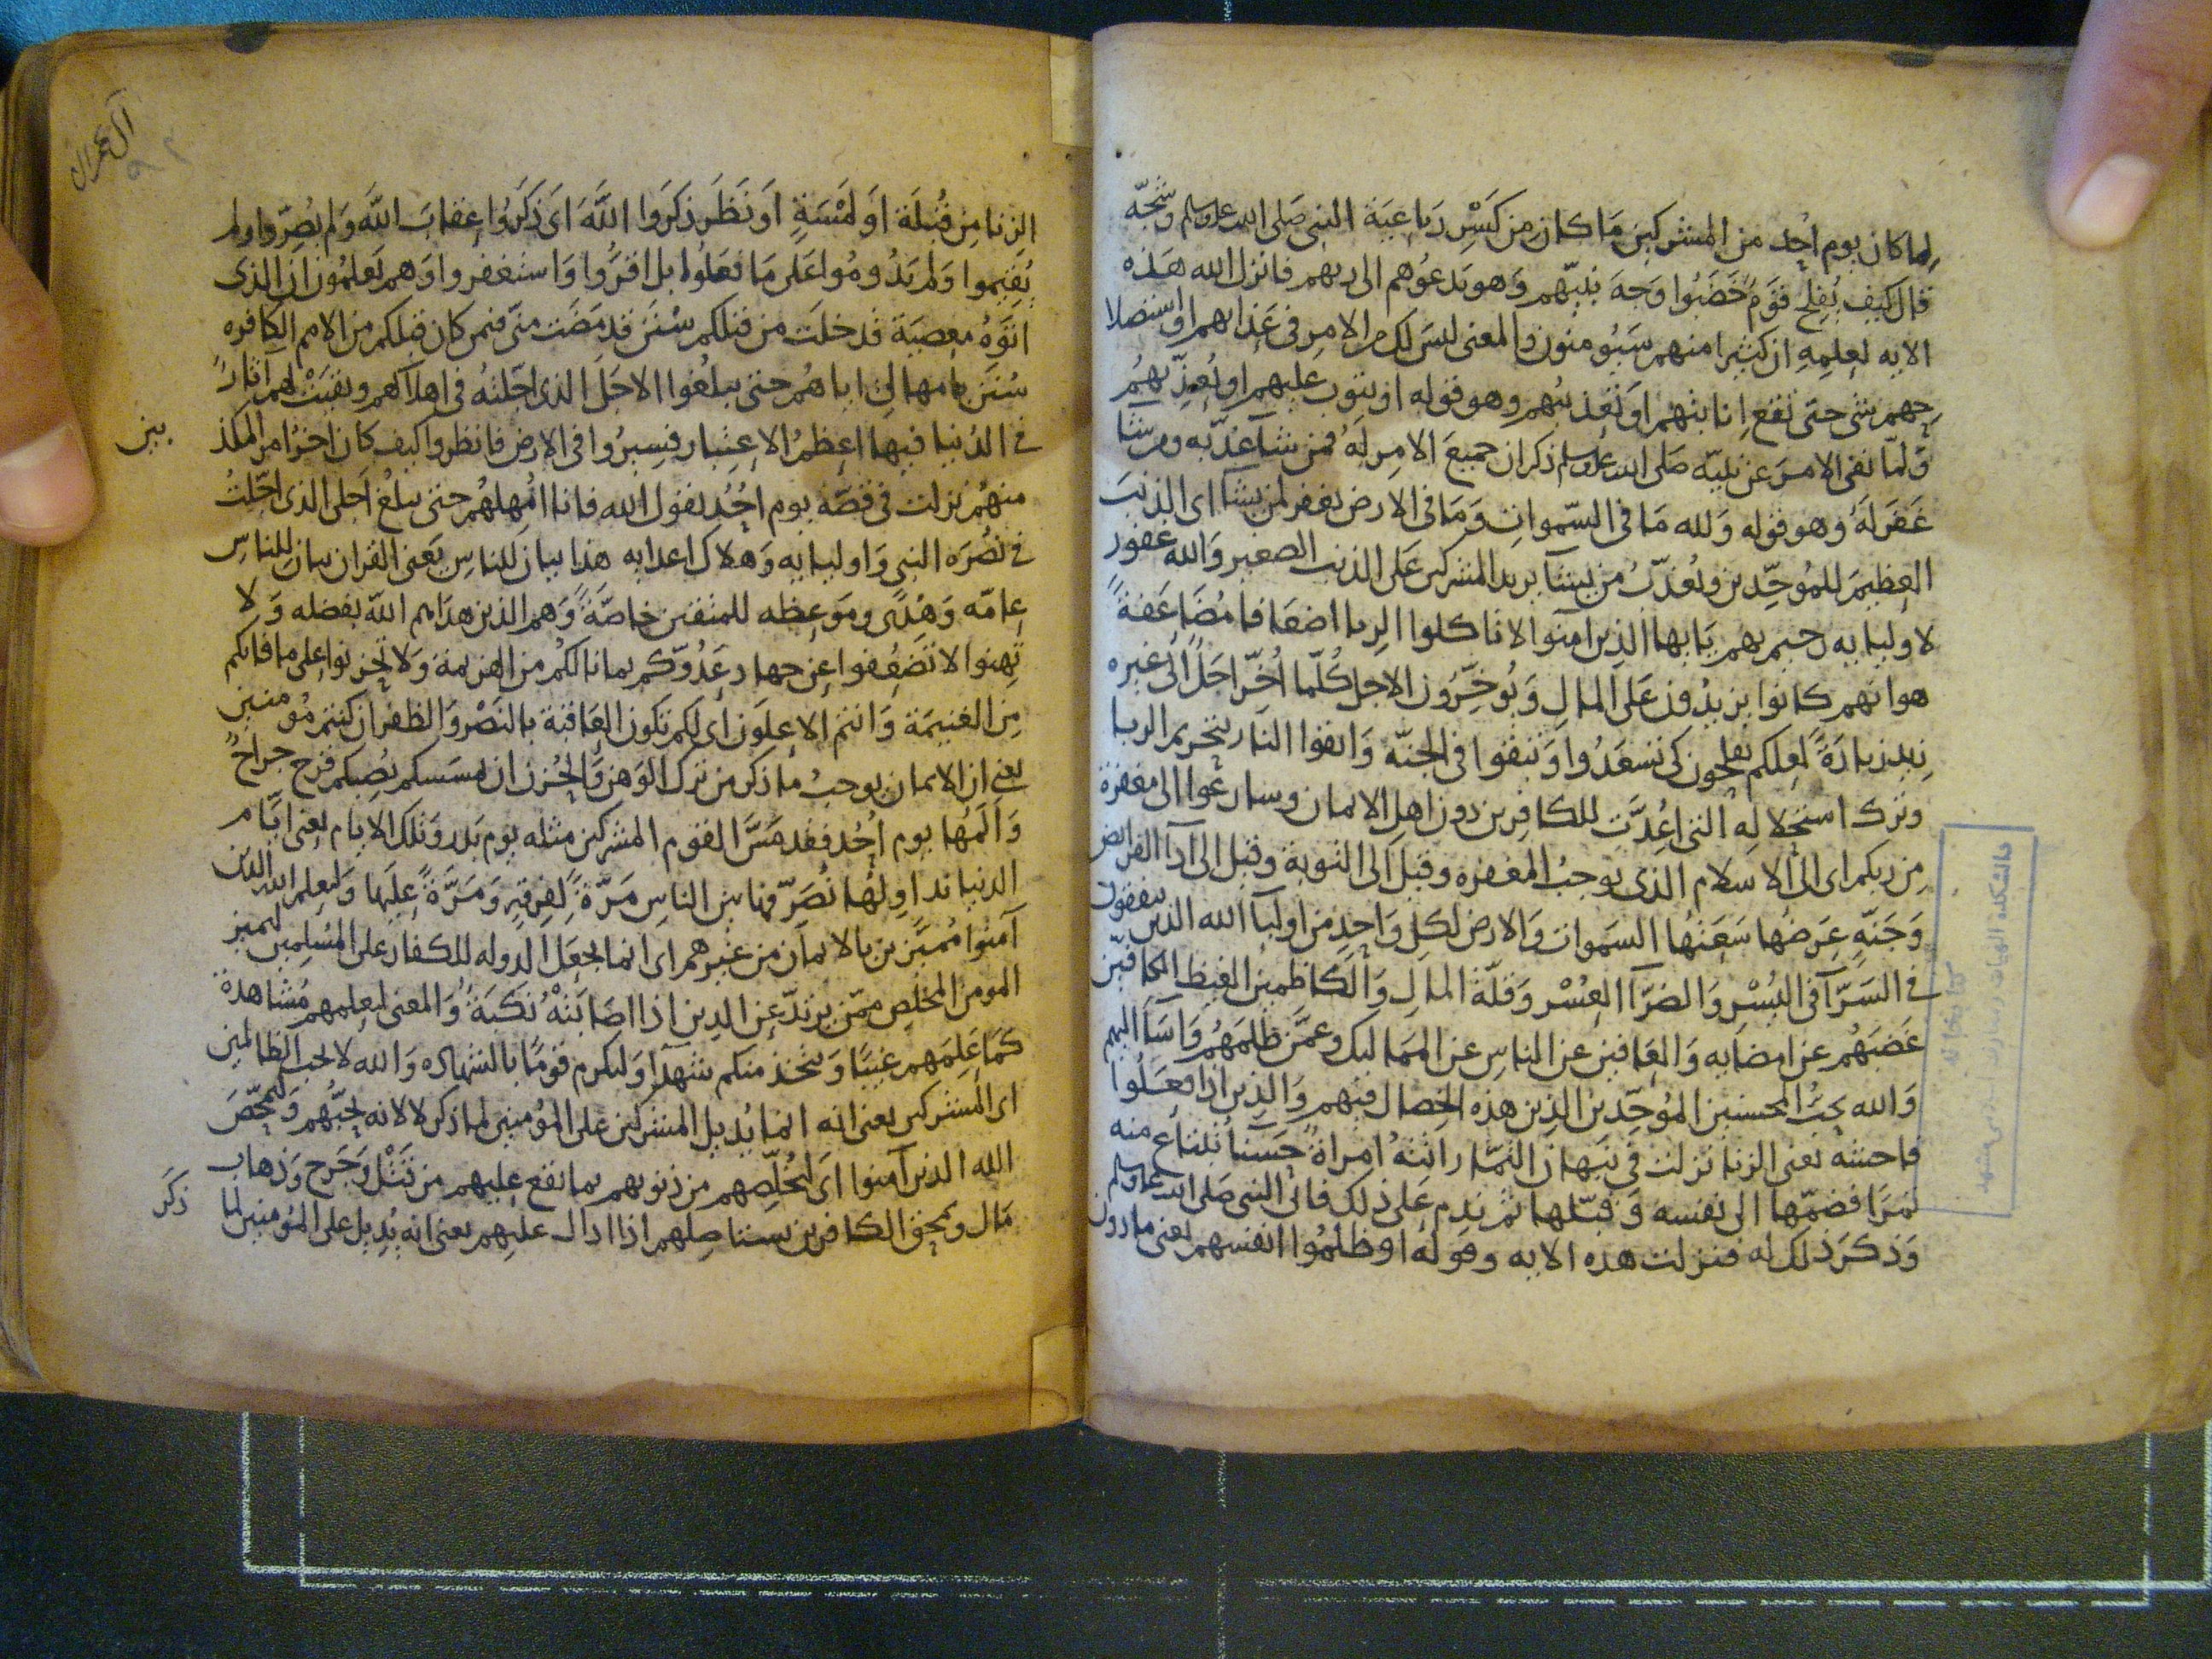 لما كان يوم احد من المشركين ما كان من كسر رباعية النبى صلى الله عليه وسلم وشجه
قال كيف يفلح قوم خضبوا وجه نبيهم وهو يدعوهم الى ربهم فانزل الله هذه
الايه لعلمه ان كثيرا منهم سيومنون والمعنى ليس لك من الامر فى عذابهم او استصلا
حهم شى حتى تقع انابتهم او تعذيبهم وهو قوله او يتوب عليهم او يعذبهم
ولما نفى الامر عن نبيه صلى الله عليه وسلم ذكر ان جميع الامر له فمن شآ عذبه ومن شآ
غفر له وهو قوله ولله ما فى السموات وما فى الارض يغفر لمن يشآ اى الذنب
العظيم للموحدين ويعذب من يشآ يريد المشركين على الذنب الصغير والله غفور
لاوليايه رحيم بهم يا يها الذين امنوا لا تاكلوا الربا اضعافا مضاعفة
هو انهم كانوا يزيدون على المال ويوخرون الاجل كلما اخر اجل الى غيره
زيد زيادة لعلكم تفلحون كى تسعدوا وتبقوا فى الجنه واتقوا النار بتحريم الربا
وترك استحلاله التى اعدت للكافرين دون اهل الايمان وسارعوا الى مغفرة
من ربكم اى الى الاسلام الذى يوجب المغفره وقيل الى التوبة وقيل الى ادآ الفرائض
وجنه عرضها سعتها السموات والارض لكل واحد من اوليآ الله الذين ينفقون
فى السرآ فى اليسر والضرآ العسر وقلة المال والكاظمين الغيظ الكافين
غضبهم عن امضايه والعافين عن الناس عن المماليك وعمن ظلمهم واسآ اليهم
والله يحب المحسنين الموحدين الذين هذه الخصال فيهم والذين اذا فعلوا
فاحشه يعنى الزنا نزلت فى نبهان التمار اتته امراة حسنآ تبتاع منه
تمرا فضمها الى نفسه وقبلها ثم ندم على ذلك فاتى النبى صلى الله عليه وسلم
وذكر ذلك له فنزلت هذه الايه وقوله او ظلموا انفسهم يعنى ما دون
آل عمران
٩٢
الزنا من قبلة او لمسة او نظر ذكروا الله اى ذكروا عقاب الله ولم يصروا ولم
يقيموا ولم يدوموا على ما فعلوا بل اقروا واستغفروا وهم يعلمون ان الذى
اتوه معصية قد خلت من قبلكم سنن قد مضت منى فيمن كان قبلكم من الامم الكافره
سنن بامهالى اياهم حتى يبلغوا الاجل الذى اجلته فى اهلاكهم وبقيت لهم اثار
فى الدنيا فيها اعظم الاعتبار فسيروا فى الارض فانظروا كيف كان اخر امر المكذ
بين
منهم نزلت فى قصة يوم احد يقول الله فانا امهلهم حتى يبلغ اجلى الذى اجلت
فى نصره النبى واوليايه وهلاك اعدايه هذا بيان للناس يعنى القران بيان للناس
عامه وهدى وموعظه للمتقين خاصة وهم الذين هداهم الله بفضله ولا
تهنوا لا تضعفوا عن جهاد عدوكم بما نالكم من الهزيمة ولا تحزنوا على ما فاتكم
من الغنيمة وانتم الاعلون اى لكم تكون العاقبة بالنصر والظفر ان كنتم مومنين
يعنى ان الايمان يوجب ما ذكر من ترك الوهن والحزن ان يمسسكم يصبكم قرح جراح
والمها يوم احد فقد مس القوم المشركين مثله يوم بدر وتلك الايام يعنى ايام
الدنيا نداولها نصرفها بين الناس مرة لفرقة ومرة عليها وليعلم الله الذين
آمنوا مميزين بالايمان من غيرهم اى انما يجعل الدوله للكفار على المسلمين ليميز
المومن المخلص ممن يرتد عن الدين اذا اصابته نكبة والمعنى ليعلمهم مشاهدة
كما علمهم غيبا ويتخذ منكم شهدآ وليكرم قوما بالشهاده والله لا يحب الظالمين
اى المشركين يعنى انه انما يديل المشركين على المؤمنين لما ذكر لا لانه يحبهم وليمحص
الله الذين آمنوا اى ليخلصهم من ذنوبهم بما يقع عليهم من قتل وجرح وذهاب
مال ويمحق الكافرين يستاصلهم اذا ادال عليهم يعنى انه يديل على المؤمنين لما
ذكر